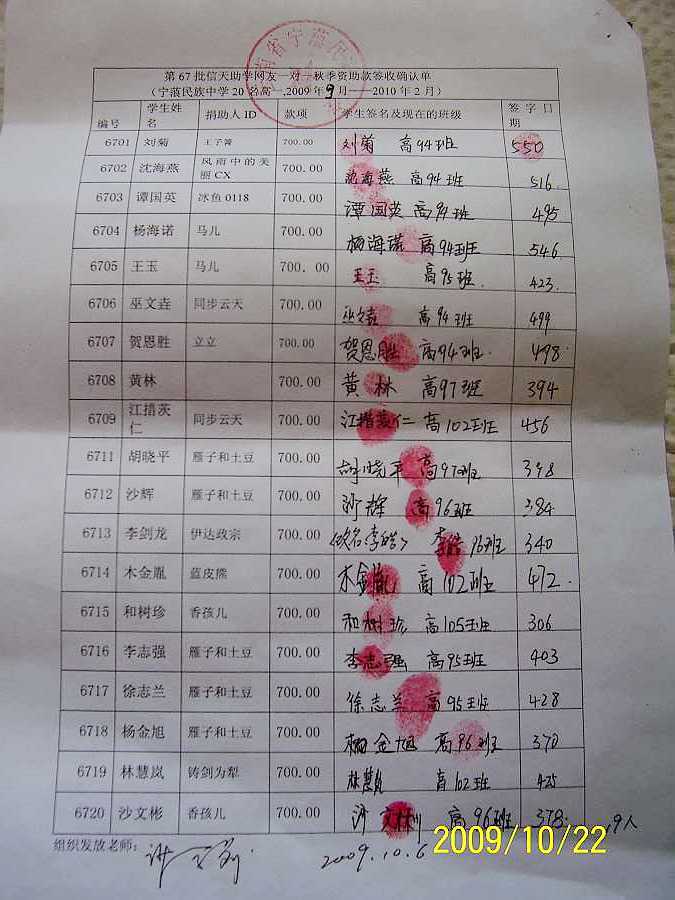 第 67 批信天助学网友一对一秋季资助款签收确认单
(宁蒗民族中学 20 名高一,2009 年9月——2010 年 2 月)
编号 学生姓名 捐助人 ID 款项 学生签名及现在的班级 签字日期
6701 刘菊 王子箐 700.00 刘菊 高94班 550
6702 沈海燕 风雨中的美丽 CX 700.00 沈海燕 高94班 516.
6703 谭国英 冰鱼 0118 700.00 谭国英 高94班 495
6704 杨海诺 马儿 700.00 杨海诺 高94班 546.
6705 王玉 马儿 700. 00 王玉 高95班 423.
6706 巫文垚 同步云天 700.00 巫文垚 高94班 499
6707 贺恩胜 立立 700.00 贺恩胜 高94班. 498.
6708 黄林 700.00 黄林 高97班 394
6709 江措茨仁 同步云天 700.00 江措茨仁 高102班 456
6711 胡晓平 雁子和土豆 700.00 胡晓平 高97班 398
6712 沙辉 雁子和土豆 700.00 沙辉 高96班 384
6713 李剑龙 伊达政宗 700.00 (改名李皓) 李皓 96班 340
6714 木金胤 蓝皮熊 700.00 木金胤 高102班 472.
6715 和树珍 香孩儿 700.00 和树珍 高105班 306
6716 李志强 雁子和土豆 700.00 李志强 高95班 403
6717 徐志兰 雁子和土豆 700.00 徐志兰 高95班 428
6718 杨金旭 雁子和土豆 700.00 杨金旭 高96班 370
6719 林慧岚 铸剑为犁 700.00 林慧岚 高102班 425
6720 沙文彬 香孩儿 700.00 沙文彬 高96班 378. 19人
组织发放老师: 2009.10.6
2009/10/22